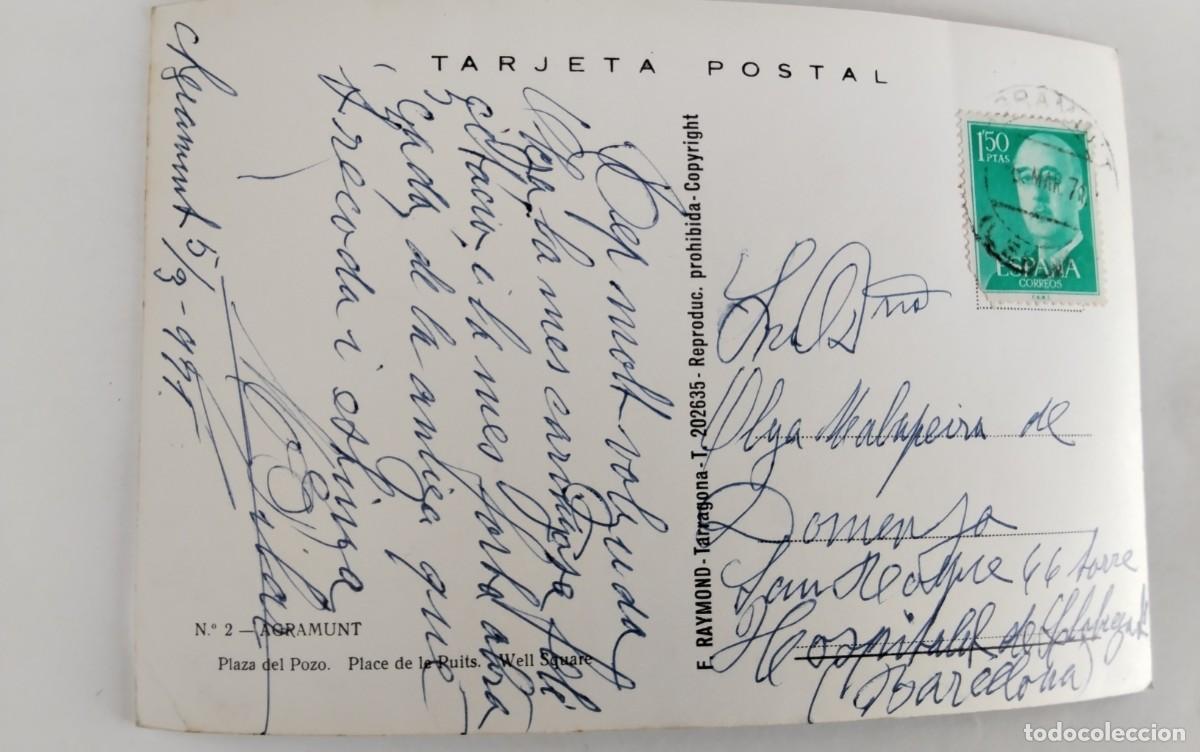 TARJETA POSTAL
Ben molt volguda
la mes carinyosa feli
citació i la mes forta abra
çada de la amiga que
t recorda i estima
Agramunt 5/3-971
N.º 2 — AGRAMUNT
Plaza del Pozo. Place de le Puits. Well Square
F. RAYMOND - Tarragona - T. 202635 - Reproduc. prohibida - Copyright
1'50
PTAS
ESPAÑA
CORREOS
F.N.M.T.
MAR
Sra Dña
Olga Malapeira de
Domenja
San Roque 66 torre
Hospitalet de Llobregat
(Barcelona)
todocoleccion